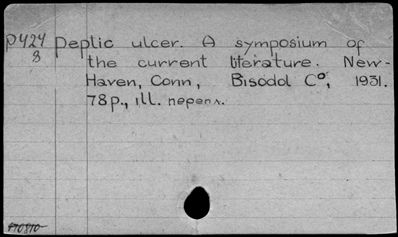 P424 Peptic ulcer. A symposium of
8 the current literature. New-
Haven, Conn, Bisodol Cº, 1931.
78 p., ill. перепл.